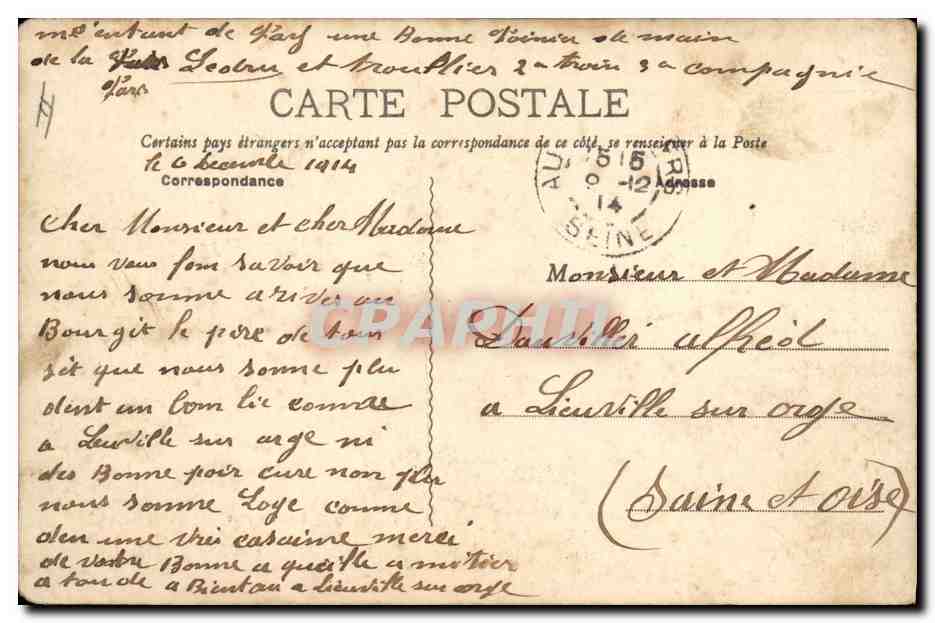 me entant de Part une Bonne Poinier de main
de la Part Ledru et troullier 2a troin 3a compagnie
Part
CARTE POSTALE
Certains pays étrangers n'acceptent pas la correspondance de ce côté, se renseigner à la Poste
le 6 Decembre 1914
Correspondance
Adresse
15 15
9 -12
14
SEINE
Cher Monsieur et cher Madame
nous vous fon savoir que
nous somme a river au
Bourgit le pire de tous
sit que nous somme plu
dent un bon lie comme
a Leuville sur orge ni
des Bonne poir cure non plu
nous somme Loge comme
den une vrès casaime merci
de vostre Bonne a queille a mötier
a tou de a Bientau a Lieuville sur orge
Monsieur et Madame
Dauvillié alfréd
a Lieuville sur orge
(Saine et oise)
CPAPHIL